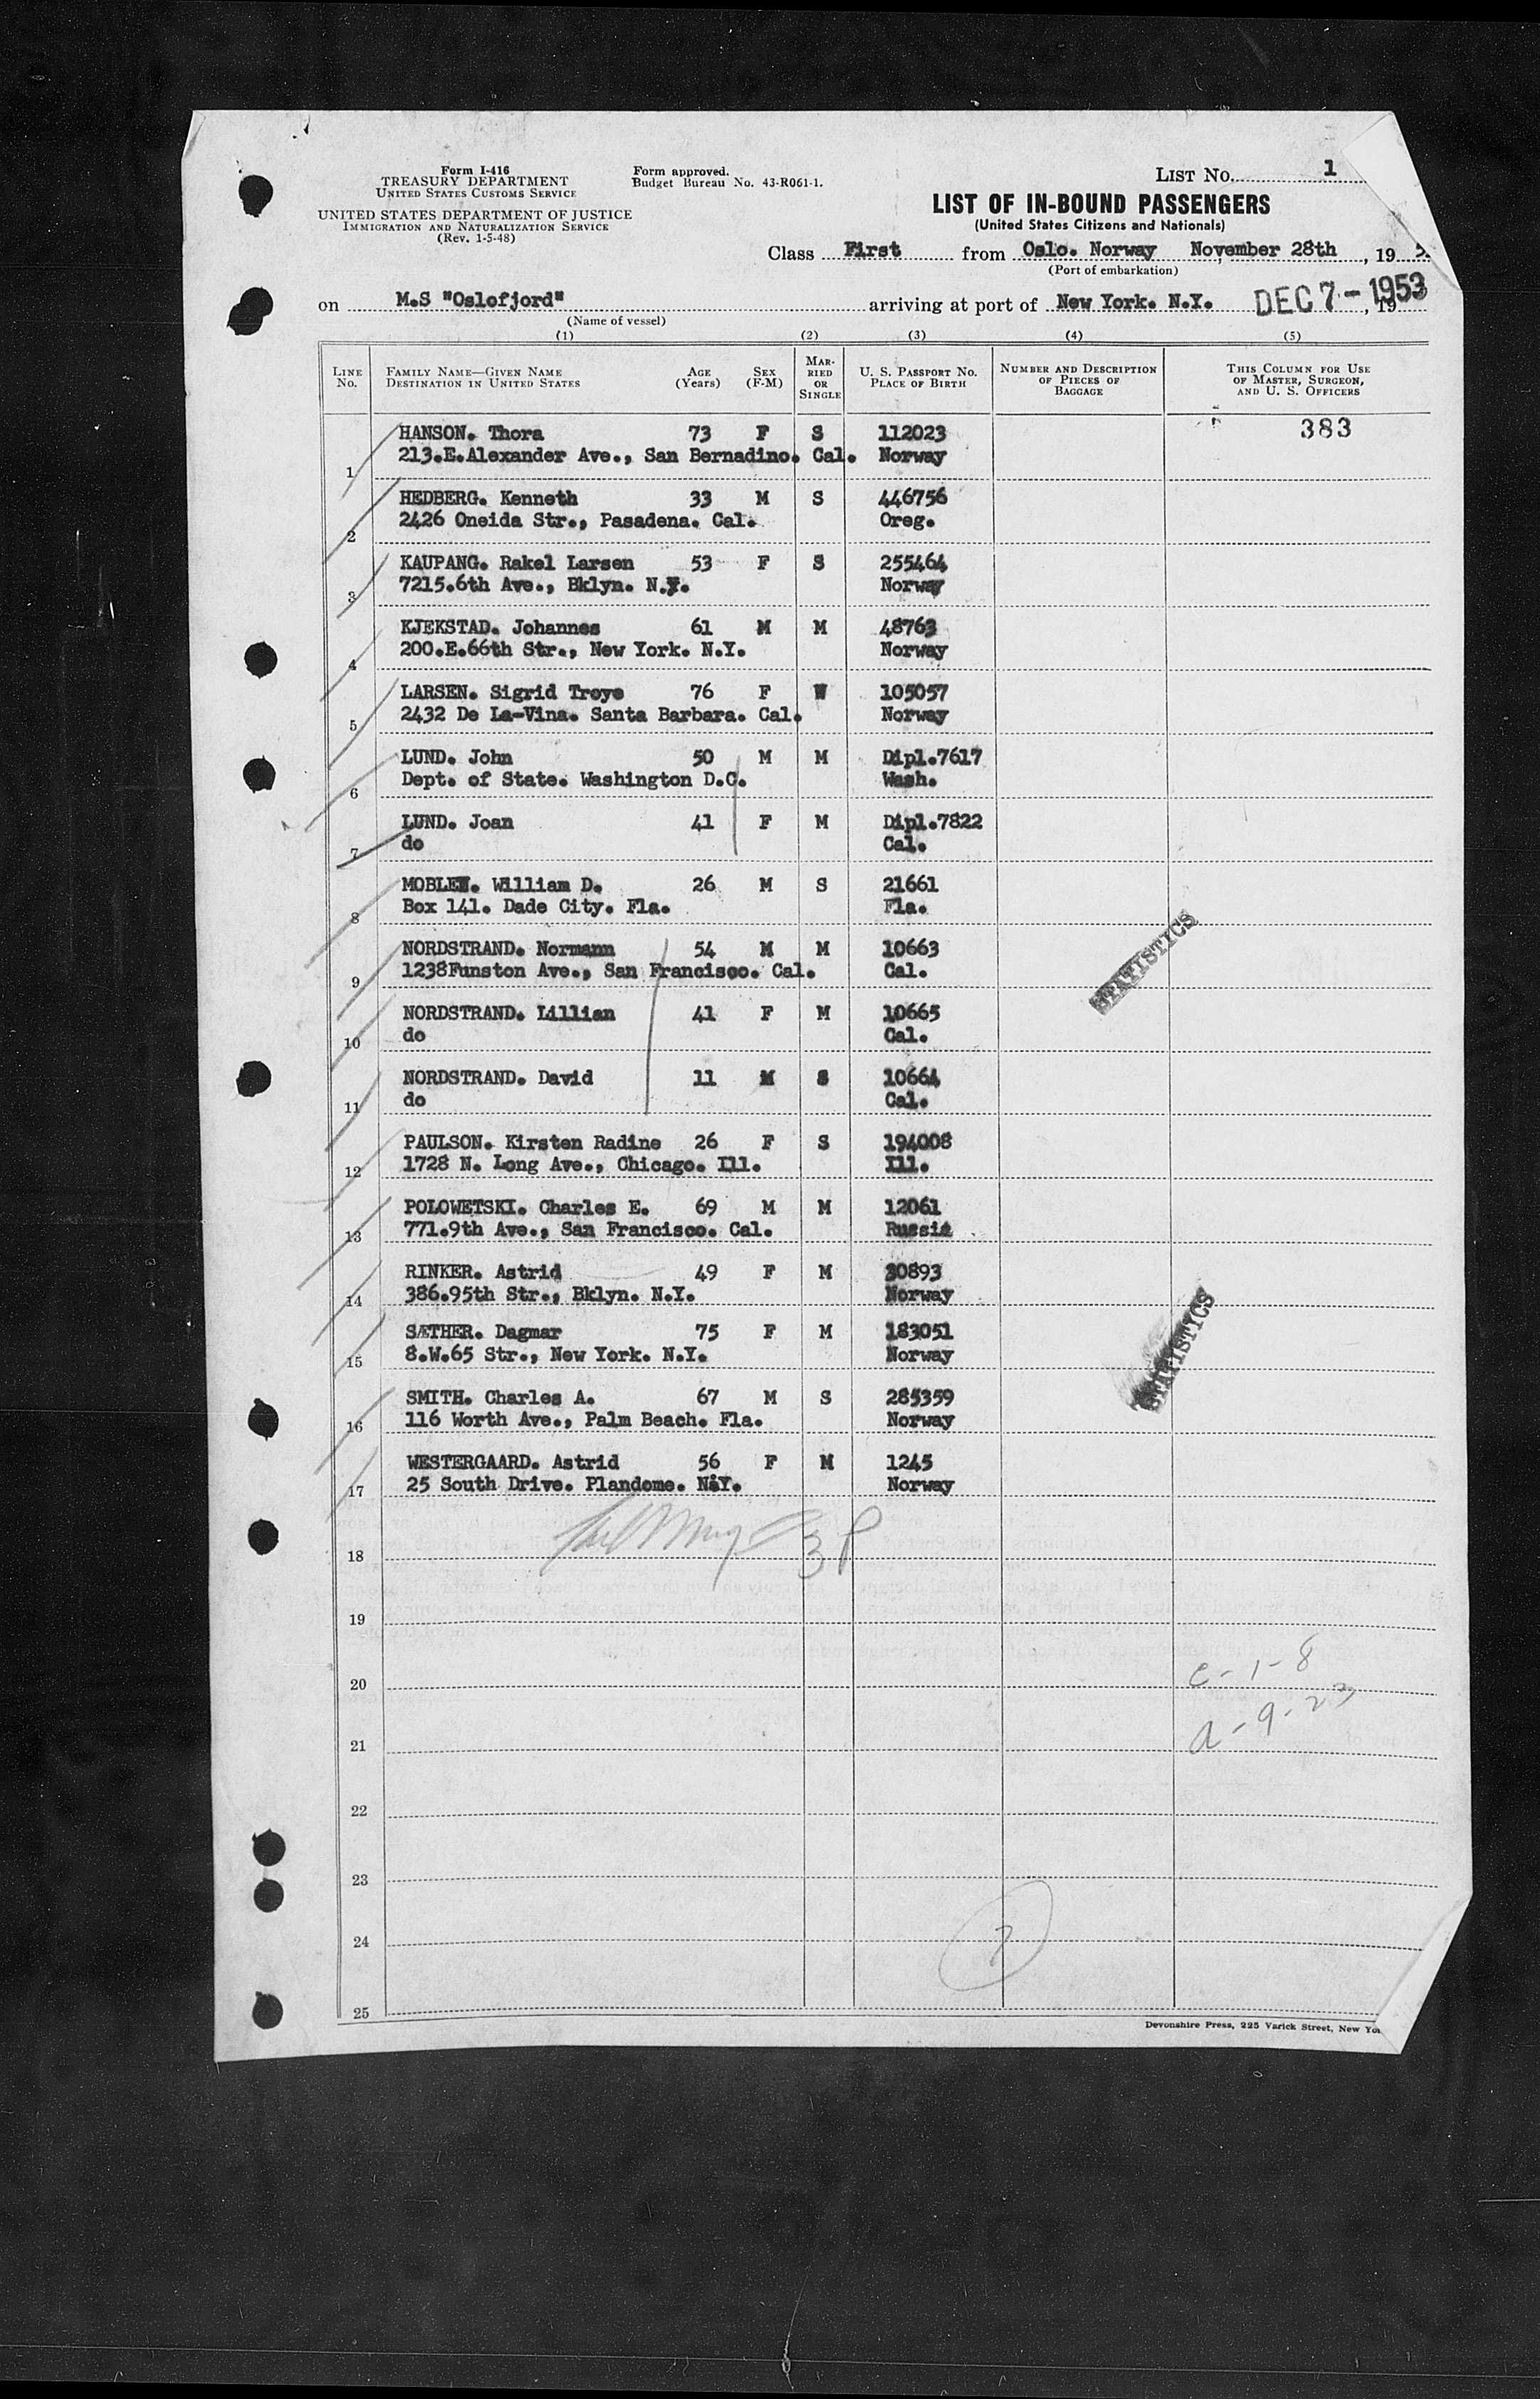 Form I-416
TREASURY DEPARTMENT
UNITED STATES CUSTOMS SERVICE
UNITED STATES DEPARTMENT OF JUSTICE
IMMIGRATION AND NATURALIZATION SERVICE
(Rev. 1-5-48)
Form approved.
Budget Bureau No. 43-R061-1.
LIST No. 1
LIST OF IN-BOUND PASSENGERS
(United States Citizens and Nationals)
Class First from Oslo. Norway November 28th, 19
(Port of embarkation)
on M.S "Oslofjord" arriving at port of New York. N.Y. DEC 7-1953, 19
(Name of vessel)
(1) (2) (3) (4) (5)
LINE No. FAMILY NAME—GIVEN NAME DESTINATION IN UNITED STATES AGE (Years) SEX (F-M) MARRIED OR SINGLE U. S. PASSPORT No. PLACE OF BIRTH NUMBER AND DESCRIPTION OF PIECES OF BAGGAGE THIS COLUMN FOR USE OF MASTER, SURGEON, AND U. S. OFFICERS
HANSON. Thora 73 F S 112023 383
1 213.E.Alexander Ave., San Bernadino. Cal. Norway
HEDBERG. Kenneth 33 M S 446756
2 2426 Oneida Str., Pasadena. Cal. Oreg.
KAUPANG. Rakel Larsen 53 F S 255464
3 7215.6th Ave., Bklyn. N.Y. Norway
KJEKSTAD. Johannes 61 M M 48763
4 200.E.66th Str., New York. N.Y. Norway
LARSEN. Sigrid Troye 76 F W 105057
5 2432 De La-Vina. Santa Barbara. Cal. Norway
LUND. John 50 M M Dipl.7617
6 Dept. of State. Washington D.C. Wash.
LUND. Joan 41 F M Dipl.7822
7 do Cal.
MOBLEY. William D. 26 M S 21661
8 Box 141. Dade City. Fla. Fla.
NORDSTRAND. Normann 54 M M 10663
9 1238Funston Ave., San Francisco. Cal. Cal.
NORDSTRAND. Lillian 41 F M 10665
10 do Cal.
NORDSTRAND. David 11 M S 10664
11 do Cal.
PAULSON. Kirsten Radine 26 F S 194008
12 1728 N. Long Ave., Chicago. Ill. Ill.
POLOWETSKI. Charles E. 69 M M 12061
13 771.9th Ave., San Francisco. Cal. Russia
RINKER. Astrid 49 F M 30893
14 386.95th Str., Bklyn. N.Y. Norway
SÆTHER. Dagmar 75 F M 183051
15 8.W.65 Str., New York. N.Y. Norway
SMITH. Charles A. 67 M S 285359
16 116 Worth Ave., Palm Beach. Fla. Norway
WESTERGAARD. Astrid 56 F M 1245
17 25 South Drive. Plandome. N.Y. Norway
STATISTICS
STATISTICS
18
19
20 c-1-8
21 a-9-23
22
23
24
25
Devonshire Press, 225 Varick Street, New